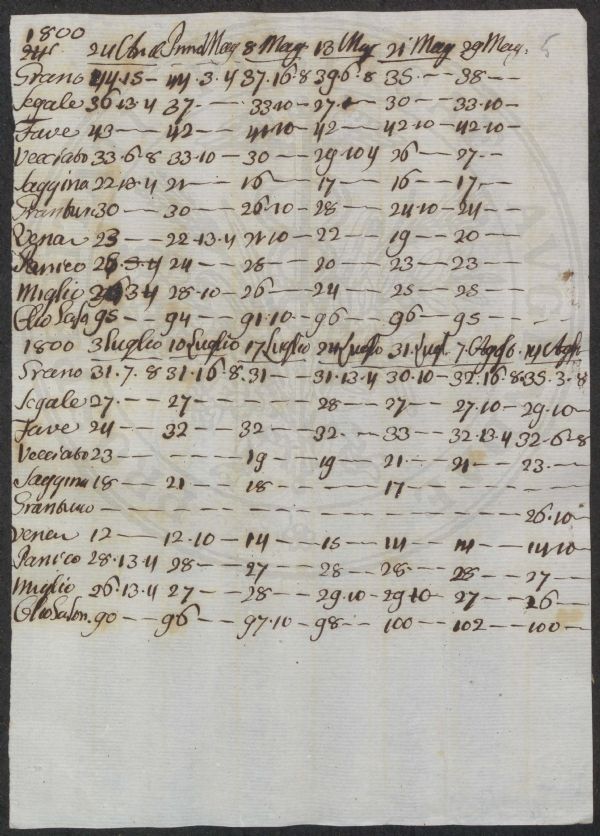 1800
24 Mag. 8 Mag. 13 Mag 21 Mag 29 Mag. 5
Grano 44·15— 44·3·4 37·16·8 39·6·8 35·— 38—
Segale 36·13·4 37·— 33·10— 27· — 30— 33·10—
Fave 43— 42— 41·10— 42— 42·10— 42·10—
Vecciato 33·6·8 33·10— 30— 29·10 4 26— 27—
Saggina 22·13·4 21— 16— 17— 16— 17—
30— 30— 26·10— 28— 24·10— 24—
Vena 23— 22·13·4 21·10— 22— 19— 20—
Panico 24— 28— 20— 23— 23—
Miglio 28·10— 26— 24— 25— 25—
95— 94— 91·10— 96— 96— 95—
1800 3 Luglio 10 Luglio 17 Luglio 24 Luglio 31 Lugl. 7 14
Grano 31·7·8 31·16·8 31— 31·13·4 30·10— 32·16·8 35·3·8
Segale 27·— 27— 28— 27— 27·10— 29·10—
Fave 24— 32— 32— 32·— 33— 32·13·4 32·6·8
Vecciato 23— 19— 19— 21— 21— 23·—
Saggina 18— 21— 18— 17—
Granturco — 26·10—
Vena 12— 12·10— 14— 15— 14— 14— 14·10—
Panico 28·13·4 28— 27— 28— 28— 28— 27—
Miglio 26·13·4 27— 28— 29·10— 29·10— 27— 26—
90— 96— 97·10— 98— 100— 102— 100—